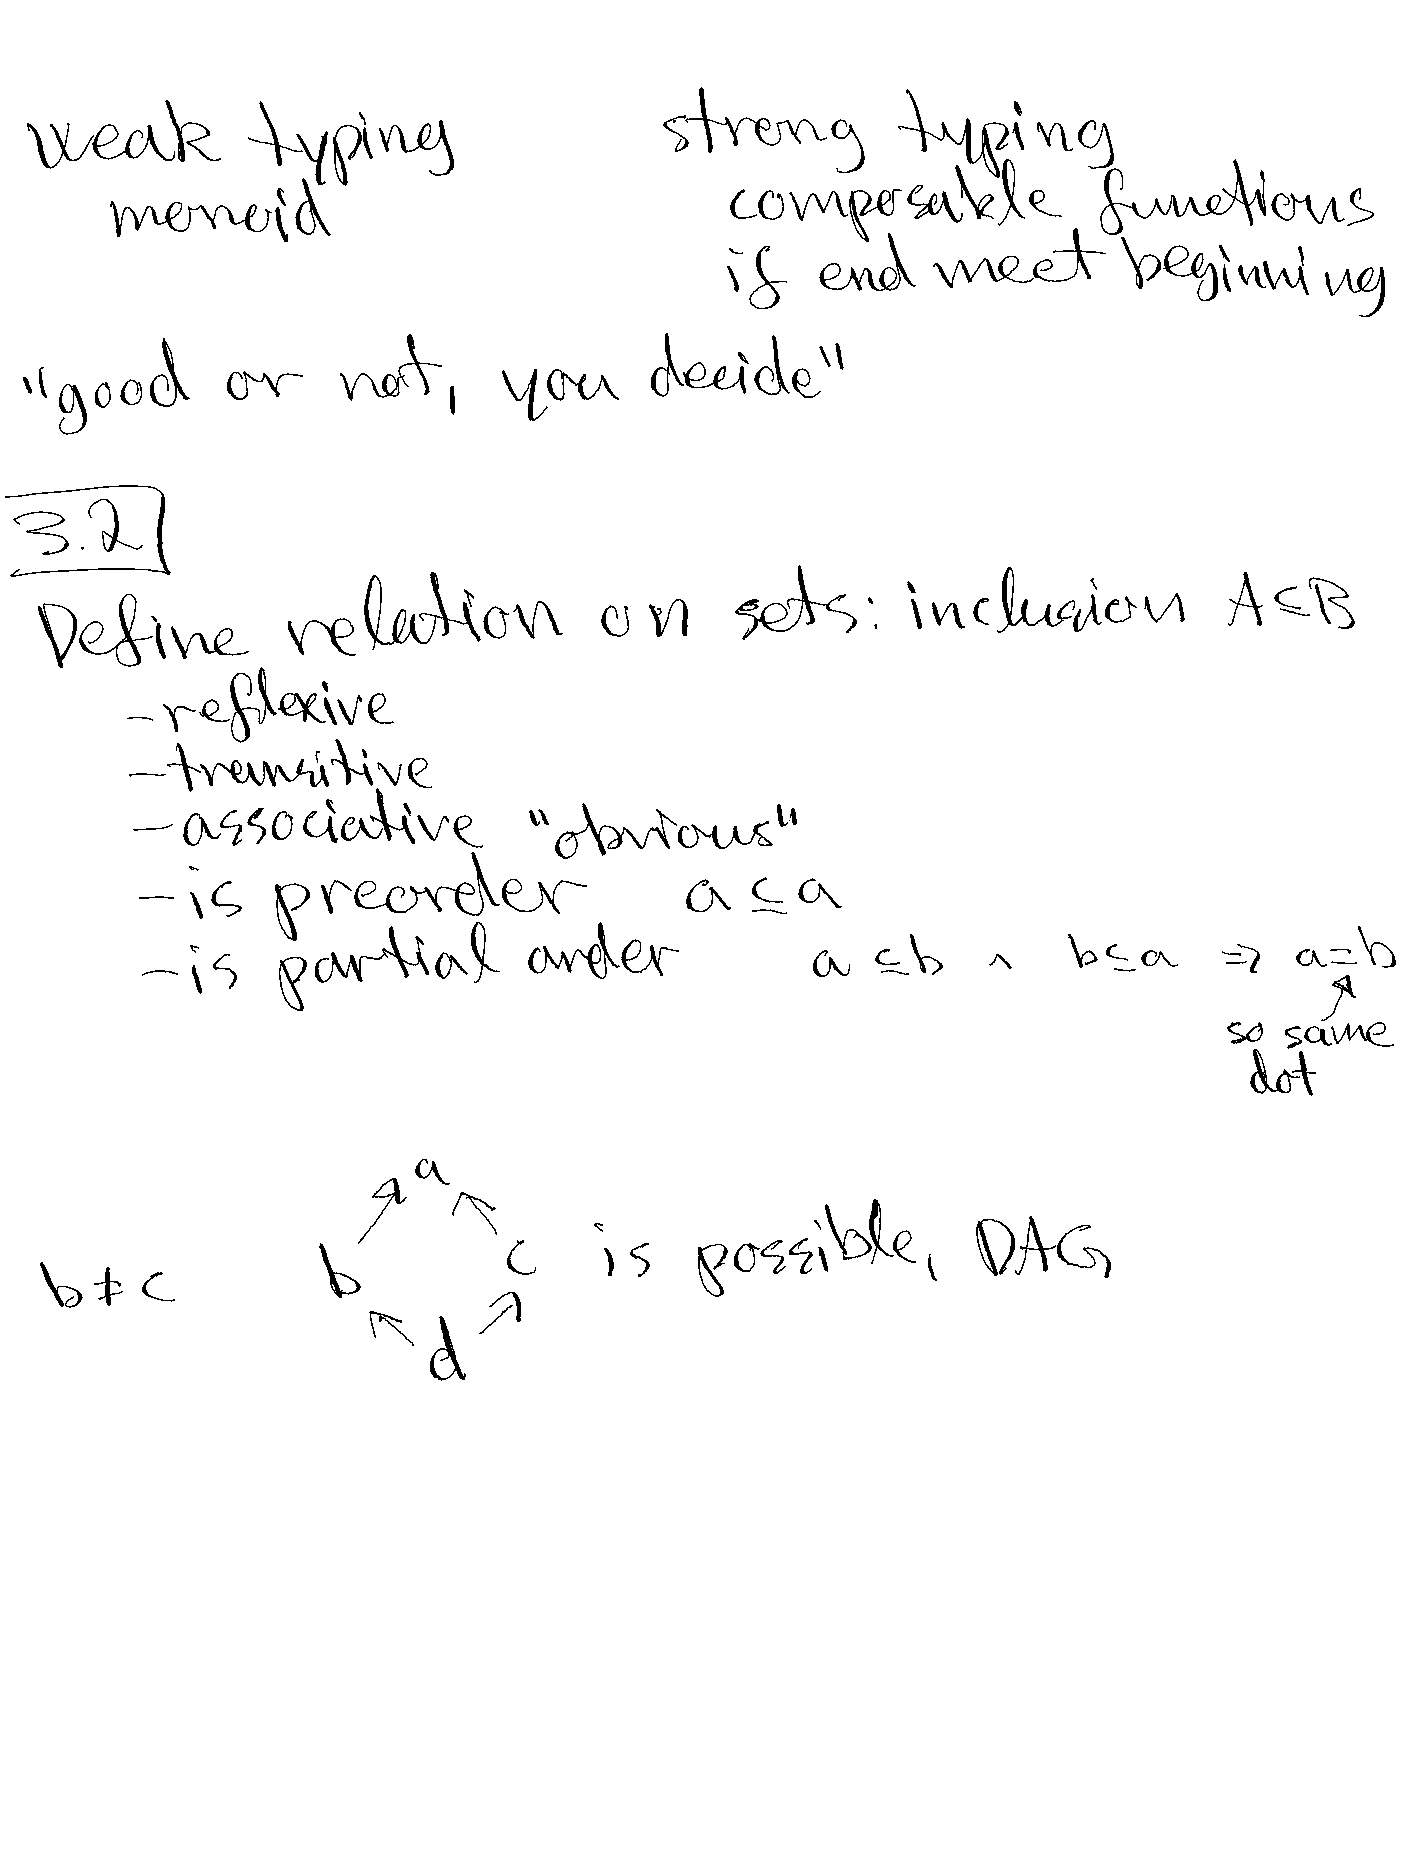 weak typing strong typing
monoid composable functions
if end meet beginning
"good or not, you decide"
3.2
Define relation on sets: inclusion A⊆B
-reflexive
-transitive
-associative "obvious"
-is preorder a ⊆ a
-is partial order a ⊆ b ∧ b ⊆ a ⇒ a=b
so same
dot
a
b≠c b c is possible, DAG
d